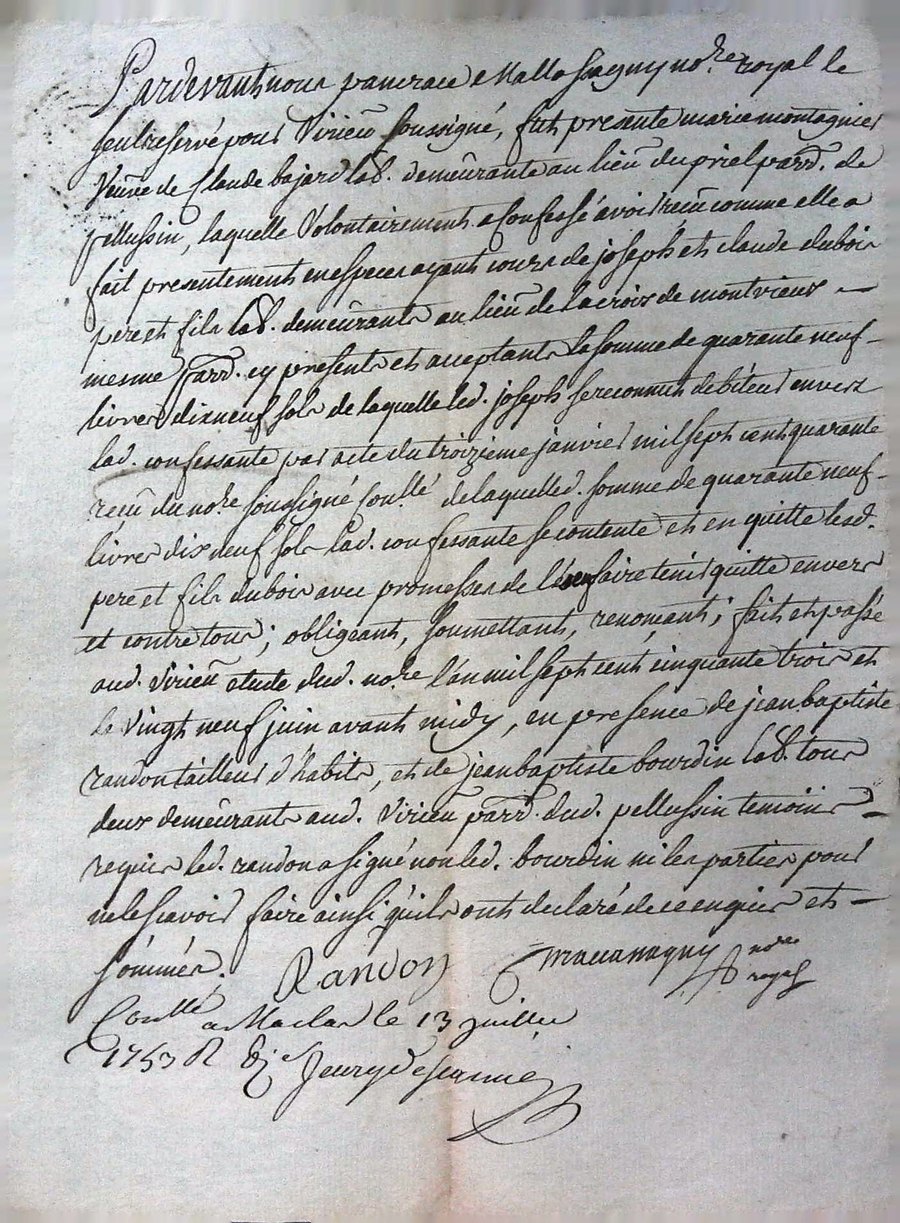 Pardevant nous pancrace Mallassagny no.re royal le
seul reservé pour Virieu soussigné, fut presente marie montagnier
Veuve de Claude bajard lab. demeurante au lieu du priel parr. de
pellussin, laquelle Volontairement a Confessé avoir reçu comme elle a
fait presentement en especes ayant cours de joseph et claude dubois
pere et fils lab. demeurants au lieu de la croix de montvieux
mesme parr. cy presents et acceptants la somme de quarante neuf
livres dixneuf sols de laquelle led. joseph se reconnut debiteur envers
lad. confessante par acte du troizieme janvier mil sept cent quarante
reçu du no.re soussigné Conllé de laquelle d. somme de quarante neuf
livres dix neuf sols lad. confessante se contente et en quitte lesd.
pere et fils dubois avec promesses de les en faire tenir quitte envers
et contre tous; obligeant, soumettant, renonçant; fait et passé
aud. Virieu etude dud. no.re l'an mil sept cent cinquante trois et
le vingt neuf juin avant midy, en presence de jean baptiste
randon tailleur d'habits, et de jean baptiste bourdin lab. tous
deux demeurants aud. Virieu parr. dud. pellussin temoins
requis led. randon a signé non led. bourdin ni les parties pour
ne le scavoir faire ainsi qu'ils ont declaré de ce enquis et
sommés. Randon no.re
royal
Conllé a Maclas le 13 juillet
1753 R